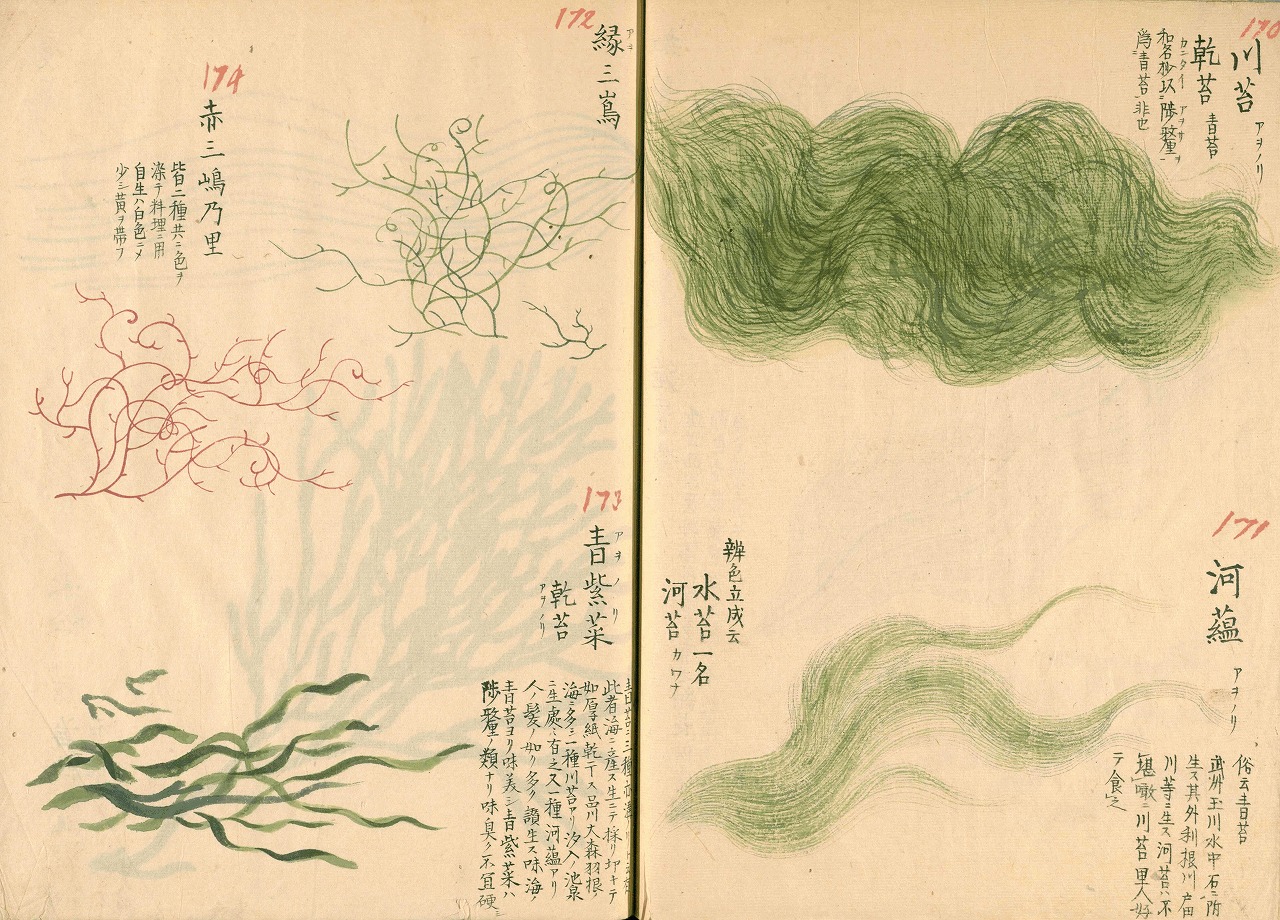 170
川苔 アヲノリ
乾苔 青苔
カンタイ アヲサヲ
和名抄以陟釐
為青苔非也
171
河蘊 アヲノリ
俗云青苔
武州玉川水中石ニ所
生ス其外利根川戸田
川等ニ生ス河苔ハ不
堪噉ニ川苔里人好
テ食之
辨色立成云
水苔一名
河苔 カワナ
172
縁三嶌
アヲ
173
青紫菜
アヲノリ
乾苔
アヲノリ
此者海ニ産ス生ニテ採リ
如厚紙乾干ス品川大森羽根
海ニ多シ一種川苔アリ汐入ノ池泉
ニ生處ニ有之又一種河蘊アリ
人ノ髪ノ如ク多ク讃生ス味海ノ
青苔ヨリ味美シ青紫菜ハ
陟釐ノ類ナリ味臭ク不宜硬シ
174
赤三嶋乃里
皆二種共ニ色ヲ
染テ料理ニ用
自生ハ白色ニメ
少シ黄ヲ帯フ